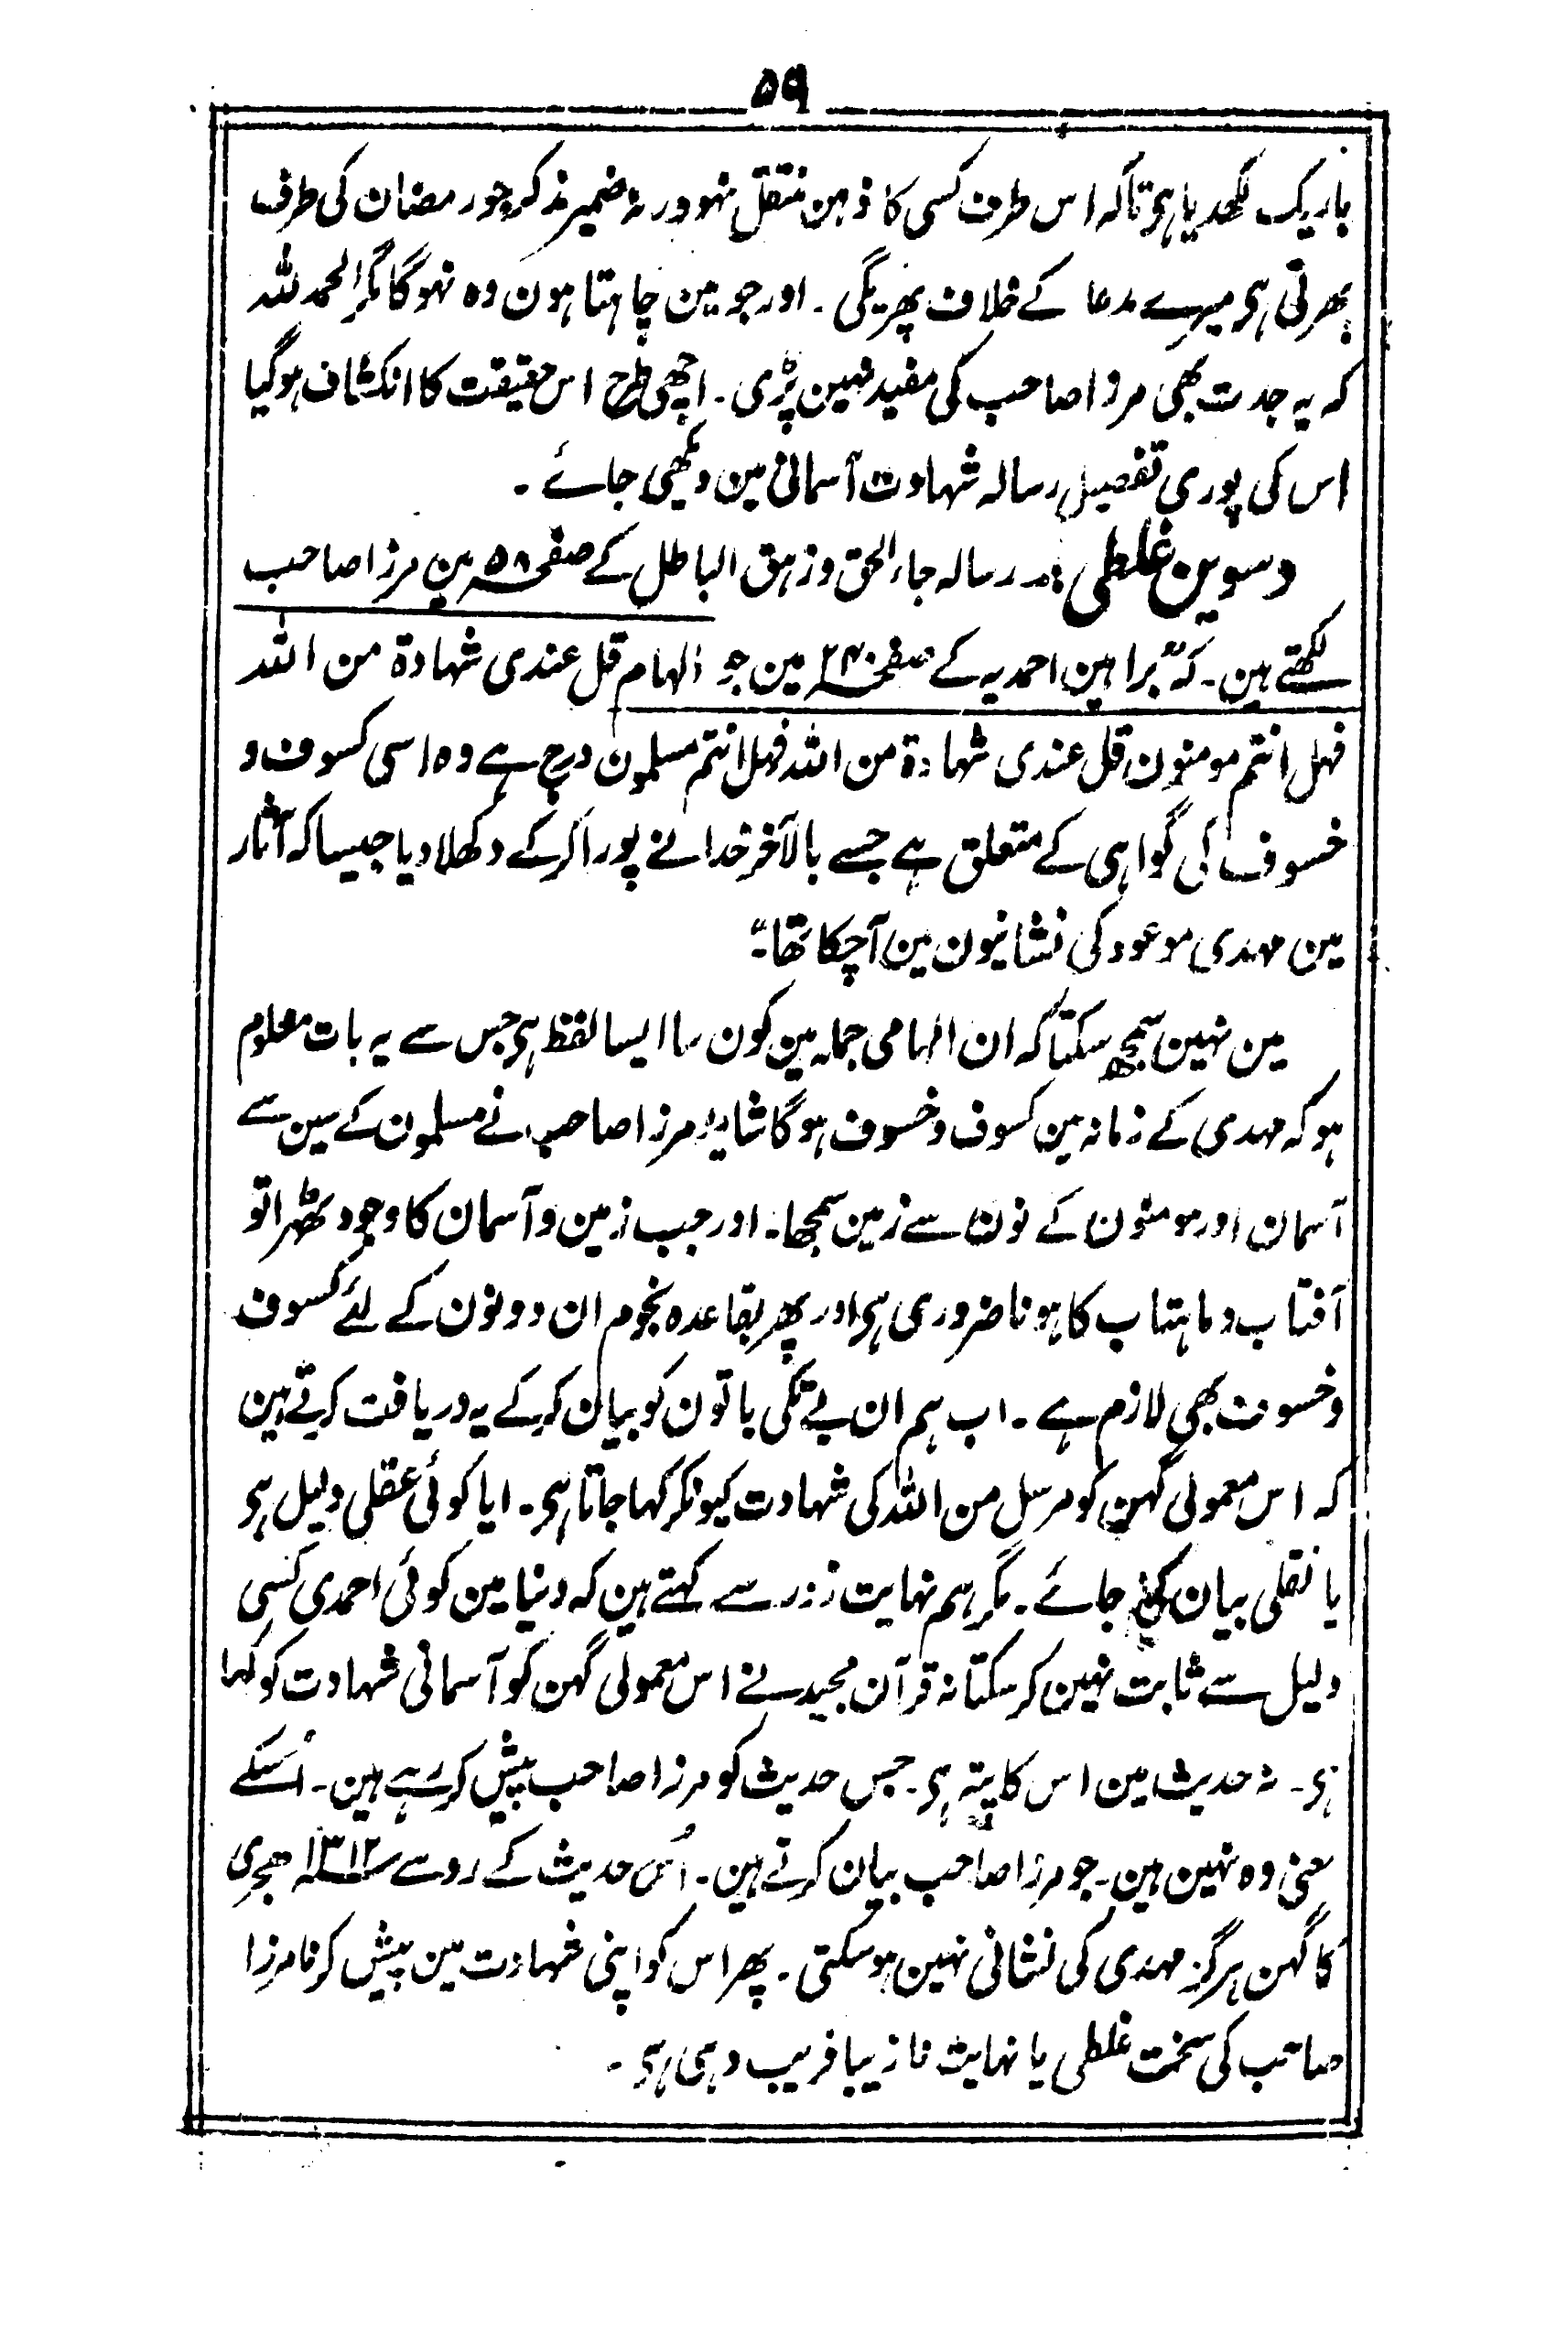 ۵۹
باریک لکھدیا ہی تاکہ اس طرف کسی کا ذہن منتقل نہو ورنہ ضمیر مذکر جو رمضان کی طرف
پھرتی ہی میرے مدعا کے خلاف پھریگی ۔ اور جو مین چاہتا ہون وہ نہوگا مگر الحمد للہ
کہ یہ جدت بھی مرزا صاحب کی مفید نہین پڑی ۔ اچھی طرح اس حقیقت کا انکشاف ہوگیا
اس کی پوری تفصیل رسالہ شہادت آسمانی مین دیکھی جائے ۔
دسوین غلطی رسالہ جاء الحق وزہق الباطل کے صفحہ ۵۸ مین مرزا صاحب
لکھتے ہین ۔ کہ "براہین احمدیہ کے صفحہ ۲۴۰ مین جو الہام قل عندی شہادۃ من اللہ
فہل انتم مومنون قل عندی شہادۃ من اللہ فہل انتم مسلمون درج ہے وہ اسی کسوف و
خسوف کی گواہی کے متعلق ہے جسے بالآخر خدا نے پورا کر کے دکھلادیا جیسا کہ آثار
مین مہدی موعود کی نشانیون مین آچکا تھا"۔
مین نہین سمجھ سکتا کہ ان الہامی جملہ مین کون سا ایسا لفظ ہی جس سے یہ بات معلوم
ہو کہ مہدی کے زمانہ مین کسوف و خسوف ہوگا شاید مرزا صاحب نے مسلمون کے سین سے
آسمان اور مومنون کے نون سے زمین سمجھا ۔ اور جب زمین و آسمان کا وجود ٹھہرا تو
آفتاب و ماہتاب کا ہونا ضروری ہی اور پھر بقاعدہ نجوم ان دونون کے لئے کسوف
و خسوف بھی لازم ہے ۔ اب ہم ان بے تکی باتون کو بیان کر کے یہ دریافت کرتے ہین
کہ اس معمولی گہن کو مرسل من اللہ کی شہادت کیونکر کہا جاتا ہی ۔ ایا کوئی عقلی دلیل ہی
یا نقلی بیان کی جائے ۔ مگر ہم نہایت زور سے کہتے ہین کہ دنیا مین کوئی احمدی کسی
دلیل سے ثابت نہین کر سکتا نہ قرآن مجید نے اس معمولی گہن کو آسمانی شہادت کو کہا
ہی ۔ نہ حدیث مین اس کا پتہ ہی ۔ جس حدیث کو مرزا صاحب پیش کر رہے ہین ۔ اُسکے
معنی وہ نہین ہین ۔ جو مرزا صاحب بیان کرتے ہین ۔ اُس حدیث کے روسے ۱۳۱۲ ھجری
کا گہن ہرگز مہدی کی نشانی نہین ہوسکتی ۔ پھر اس کو اپنی شہادت مین پیش کرنا مرزا
صاحب کی سخت غلطی یا نہایت نازیبا فریب دہی ہی ۔